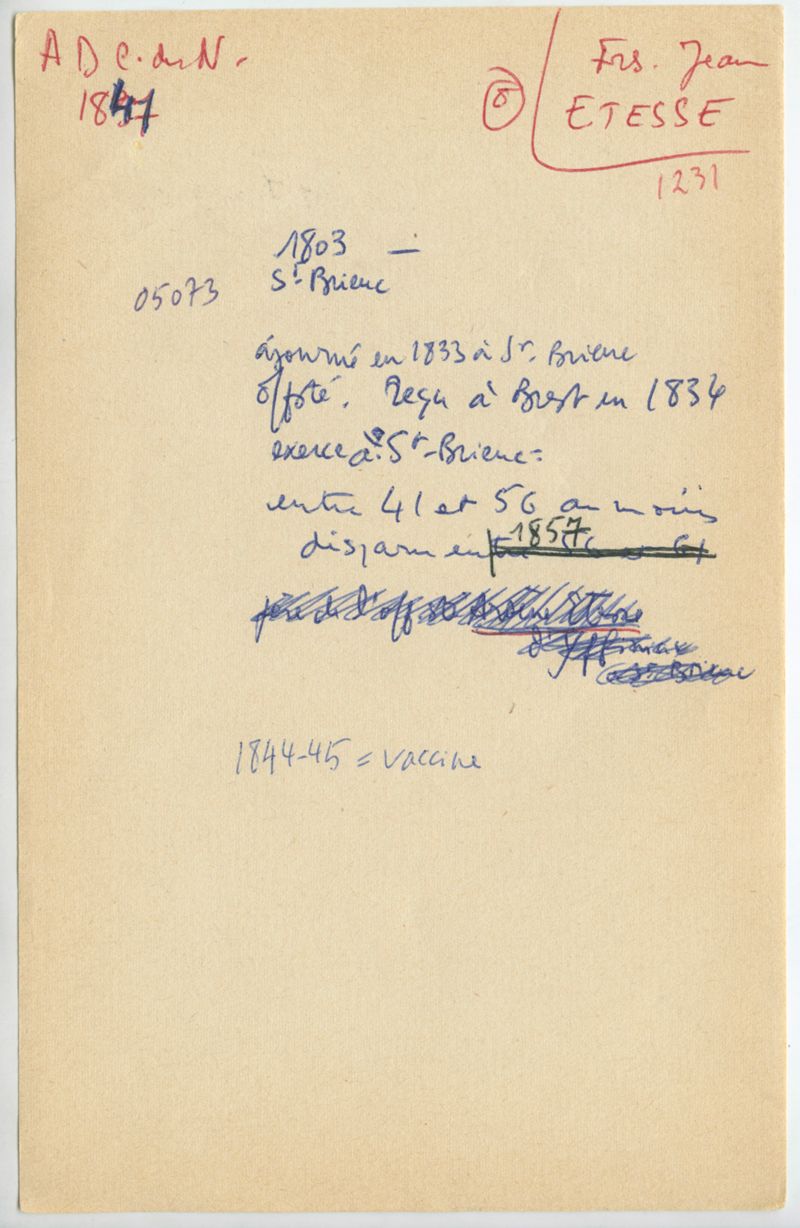 A D C. du N.
1841
Frs. Jean
ETESSE
1231
1803 —
St-Brieuc
05073
ajourné en 1833 à St. Brieuc
off. sté. Reçu à Brest en 1834
exerce à St-Brieuc-
entre 41 et 56 au moins
disparu en 1857
père de l'off de
1844-45 = vaccine